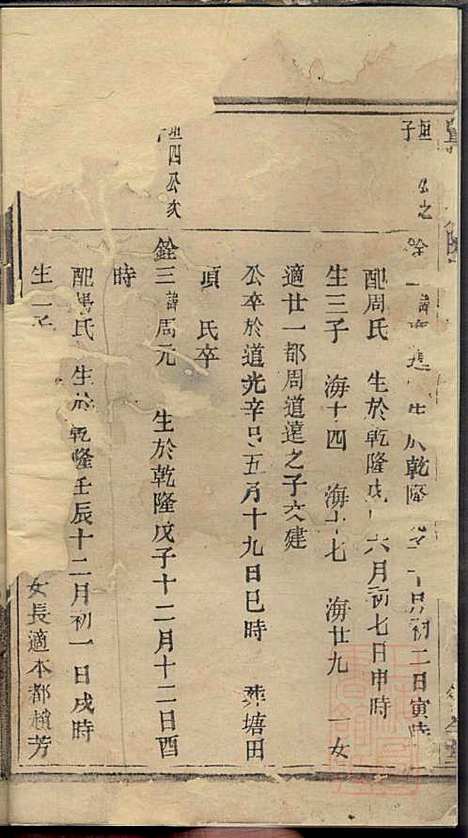 垣 公之
子
銓 諱 生於乾隆 初二日寅時
配周氏 生於乾隆戊 六月初七日申時
生三子 海十四 海十七 海廿九 一女
適廿一都周道達之子文建
公卒於道光辛 五月十九日巳時 塟塘田
項 氏卒
垣四公次
銓三 諱周元 生於乾隆戊子十二月十二日酉
時
配 氏 生於乾隆壬辰十二月初一日戌時
生 子 女長適本都 芳